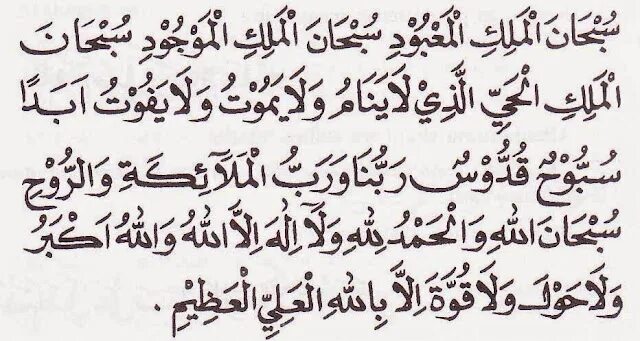 سُبْحَانَ الْمَلِكِ الْمَعْبُوْدِ سُبْحَانَ الْمَلِكِ الْمَوْجُوْدِ سُبْحَانَ
الْمَلِكِ الْحَيِّ الَّذِيْ لَايَنَامُ وَلَايَمُوْتُ وَلَايَفُوْتُ اَبَدًا
سُبُّوْحٌ قُدُّوْسٌ رَبُّنَا وَرَبُّ الْمَلَآئِكَةِ وَالرُّوْحِ
سُبْحَانَ اللهِ وَالْحَمْدُ لِلّٰهِ وَلَآ اِلٰهَ اِلَّا اللهُ وَاللهُ اَكْبَرُ
وَلَا حَوْلَ وَلَا قُوَّةَ اِلَّا بِاللهِ الْعَلِيِّ الْعَظِيْمِ .